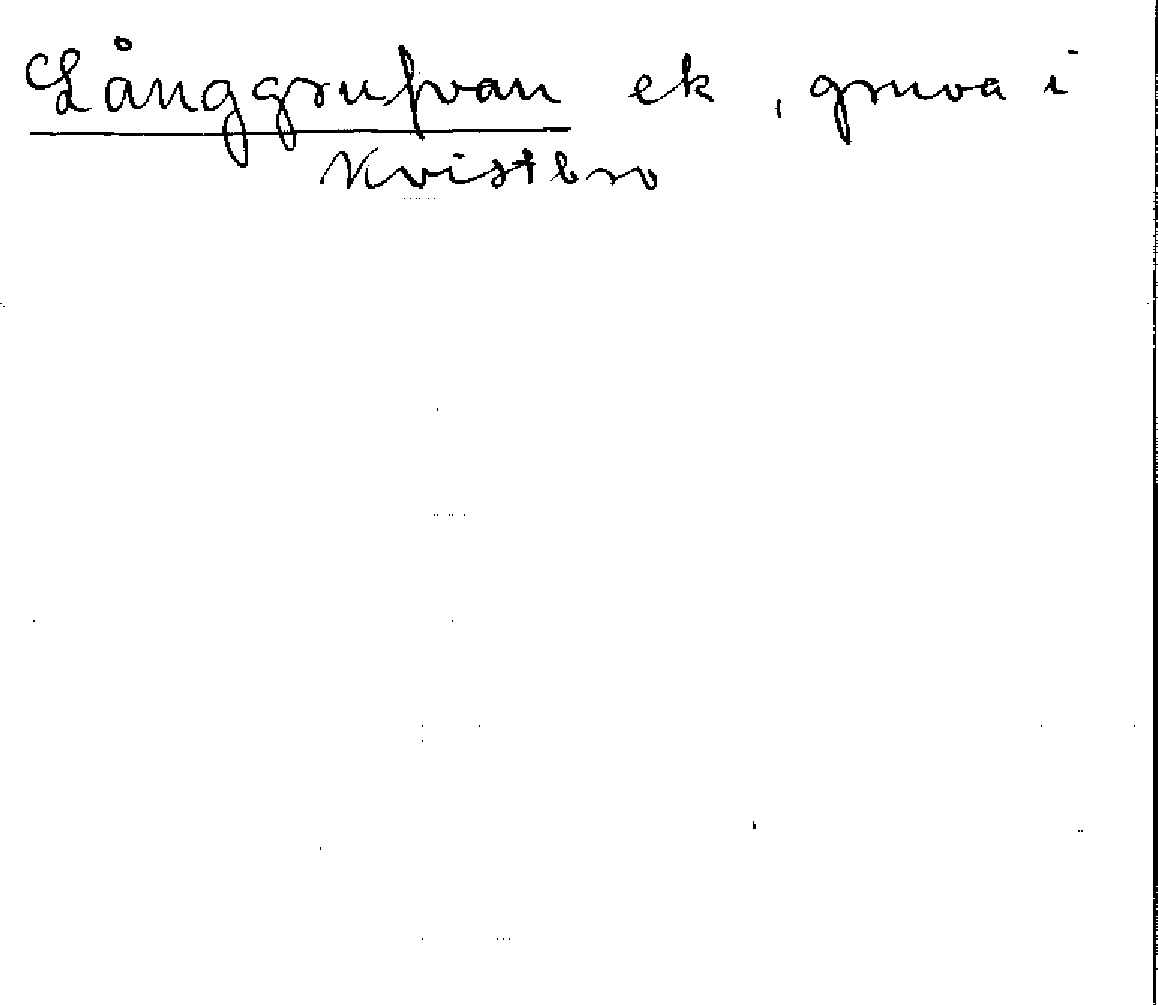 Långgrufvan ek, gruva i
Kvistbro